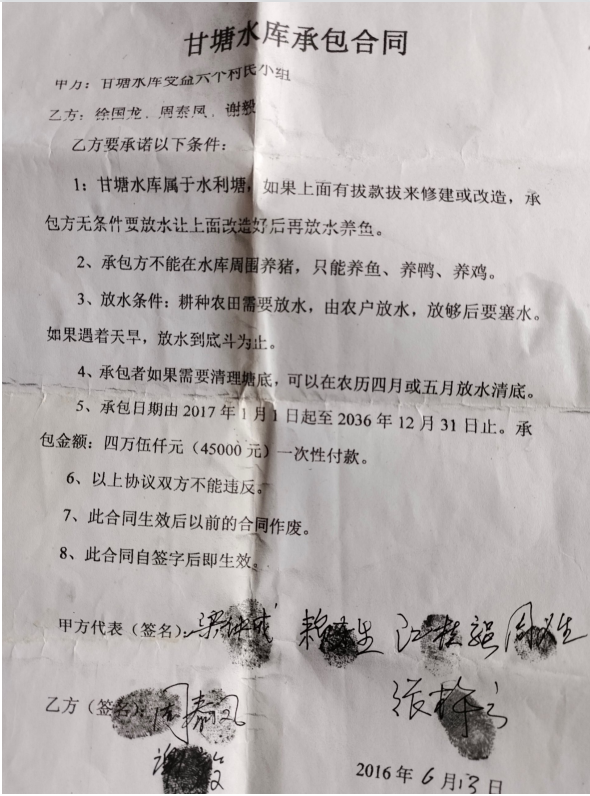 甘塘水库承包合同
甲方：甘塘水库受益六个村民小组
乙方：徐国龙、周泰凤、谢毅
乙方要承诺以下条件：
1；甘塘水库属于水利塘，如果上面有拔款拔来修建或改造，承
包方无条件要放水让上面改造好后再放水养鱼。
2、承包方不能在水库周围养猪，只能养鱼、养鸭、养鸡。
3、放水条件：耕种农田需要放水，由农户放水，放够后要塞水。
如果遇着天旱，放水到底斗为止。
4、承包者如果需要清理塘底，可以在农历四月或五月放水清底。
5、承包日期由 2017 年 1 月 1 日起至 2036 年 12 月 31 日止。承
包金额：四万伍仟元（45000 元）一次性付款。
6、以上协议双方不能违反。
7、此合同生效后以前的合同作废。
8、此合同自签字后即生效。
甲方代表（签名）：
乙方（签名）：周泰凤
谢毅
2016 年 6 月 13 日